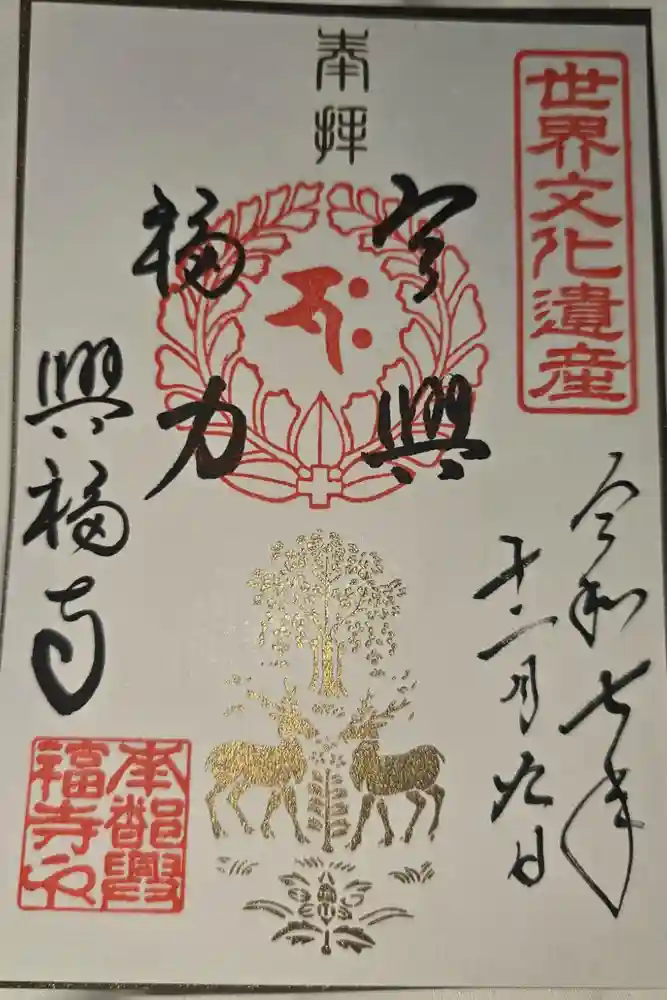 奉拝
世界文化遺産
令和七年
十二月九日
令興
福力
興福寺
南都興
福寺之